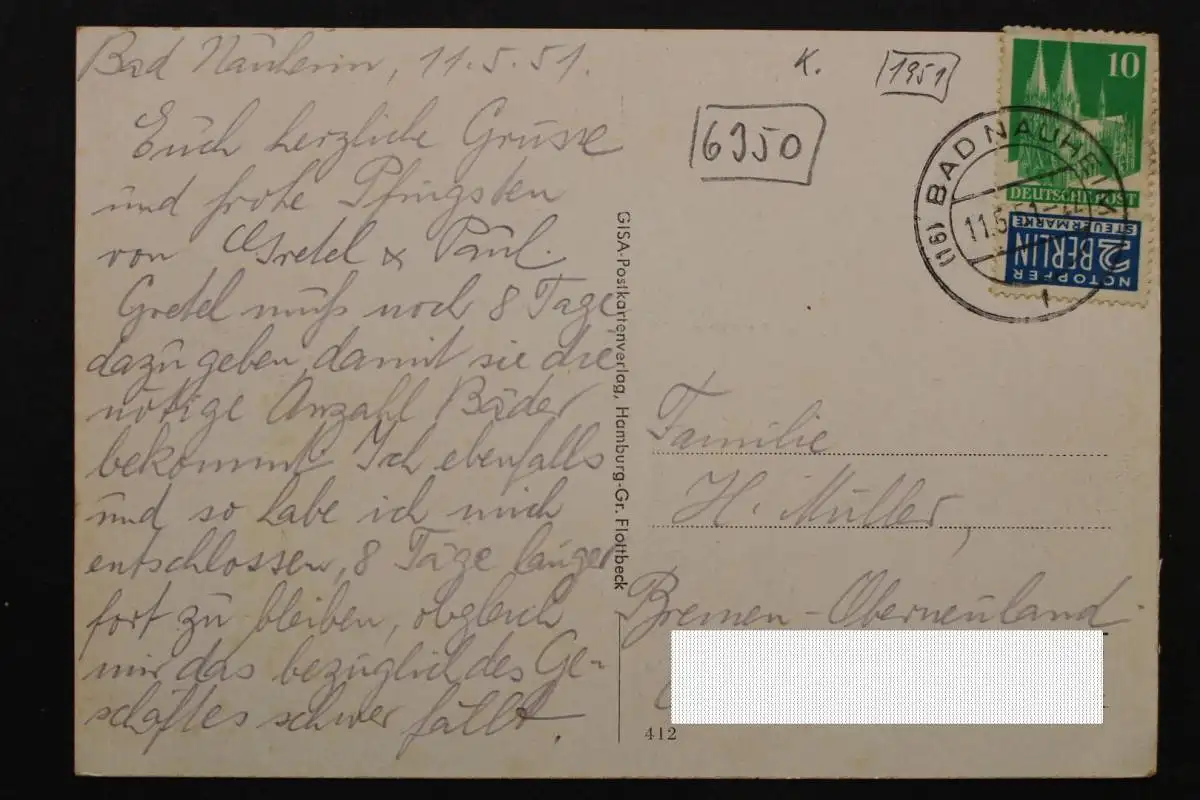 Bad Nauheim, 11.5.51.
Euch herzliche Grüsse
und frohe Pfingsten
von Gretel & Paul.
Gretel muß noch 8 Tage
dazu geben, damit sie die
nötige Anzahl Bäder
bekommt. Ich ebenfalls
und so habe ich mich
entschlossen, 8 Tage länger
fort zu bleiben, obgleich
mir das bezüglich des Ge-
schäftes schwer fällt.
GISA-Postkartenverlag, Hamburg-Gr. Flottbeck
412
K.
1951
6350
10
DEUTSCHE POST
NOTOPFER
2 BERLIN
STEUERMARKE
(16) BAD NAUHEIM
11.5.51
1
Familie
H. Müller,
Bremen-Oberneuland